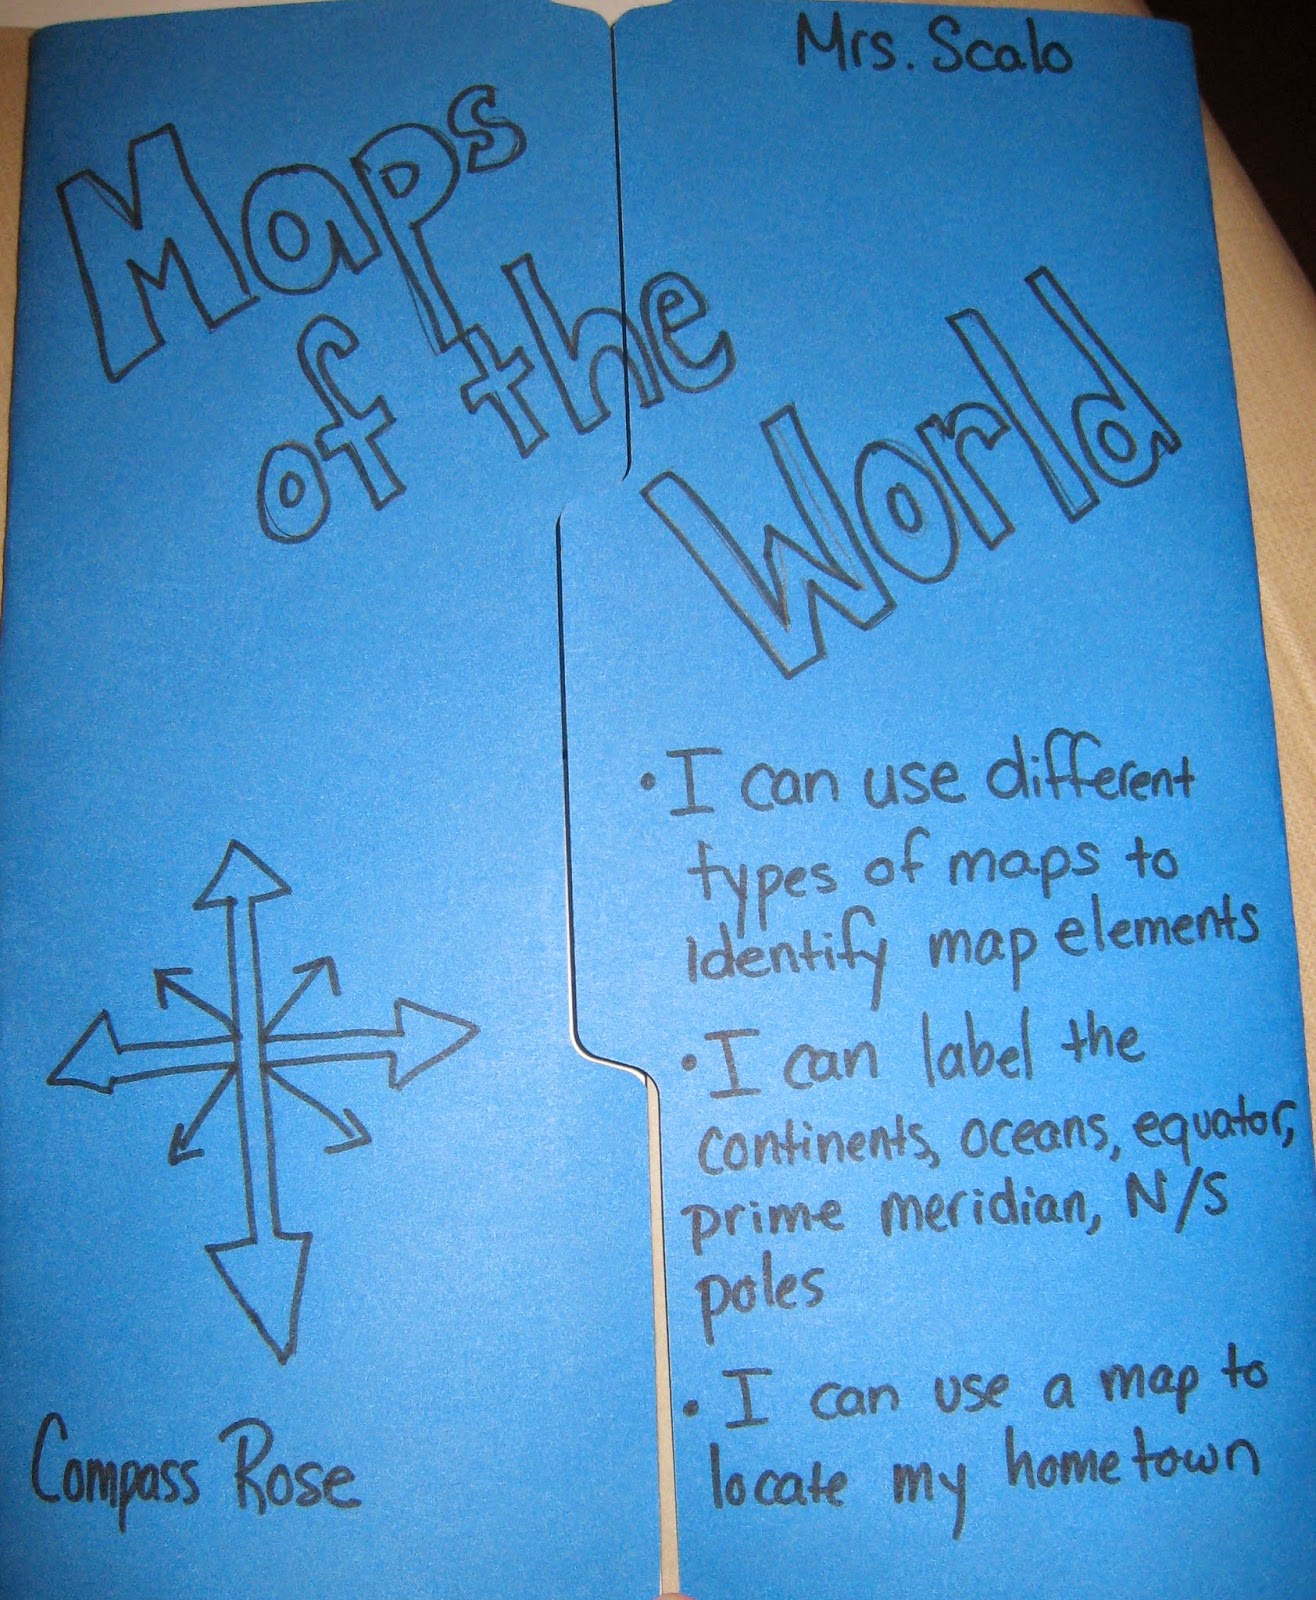 Mrs. Scalo
Maps
of the
World
• I can use different
types of maps to
identify map elements
• I can label the
continents, oceans, equator,
prime meridian, N/S
poles
• I can use a map to
locate my hometown
Compass Rose